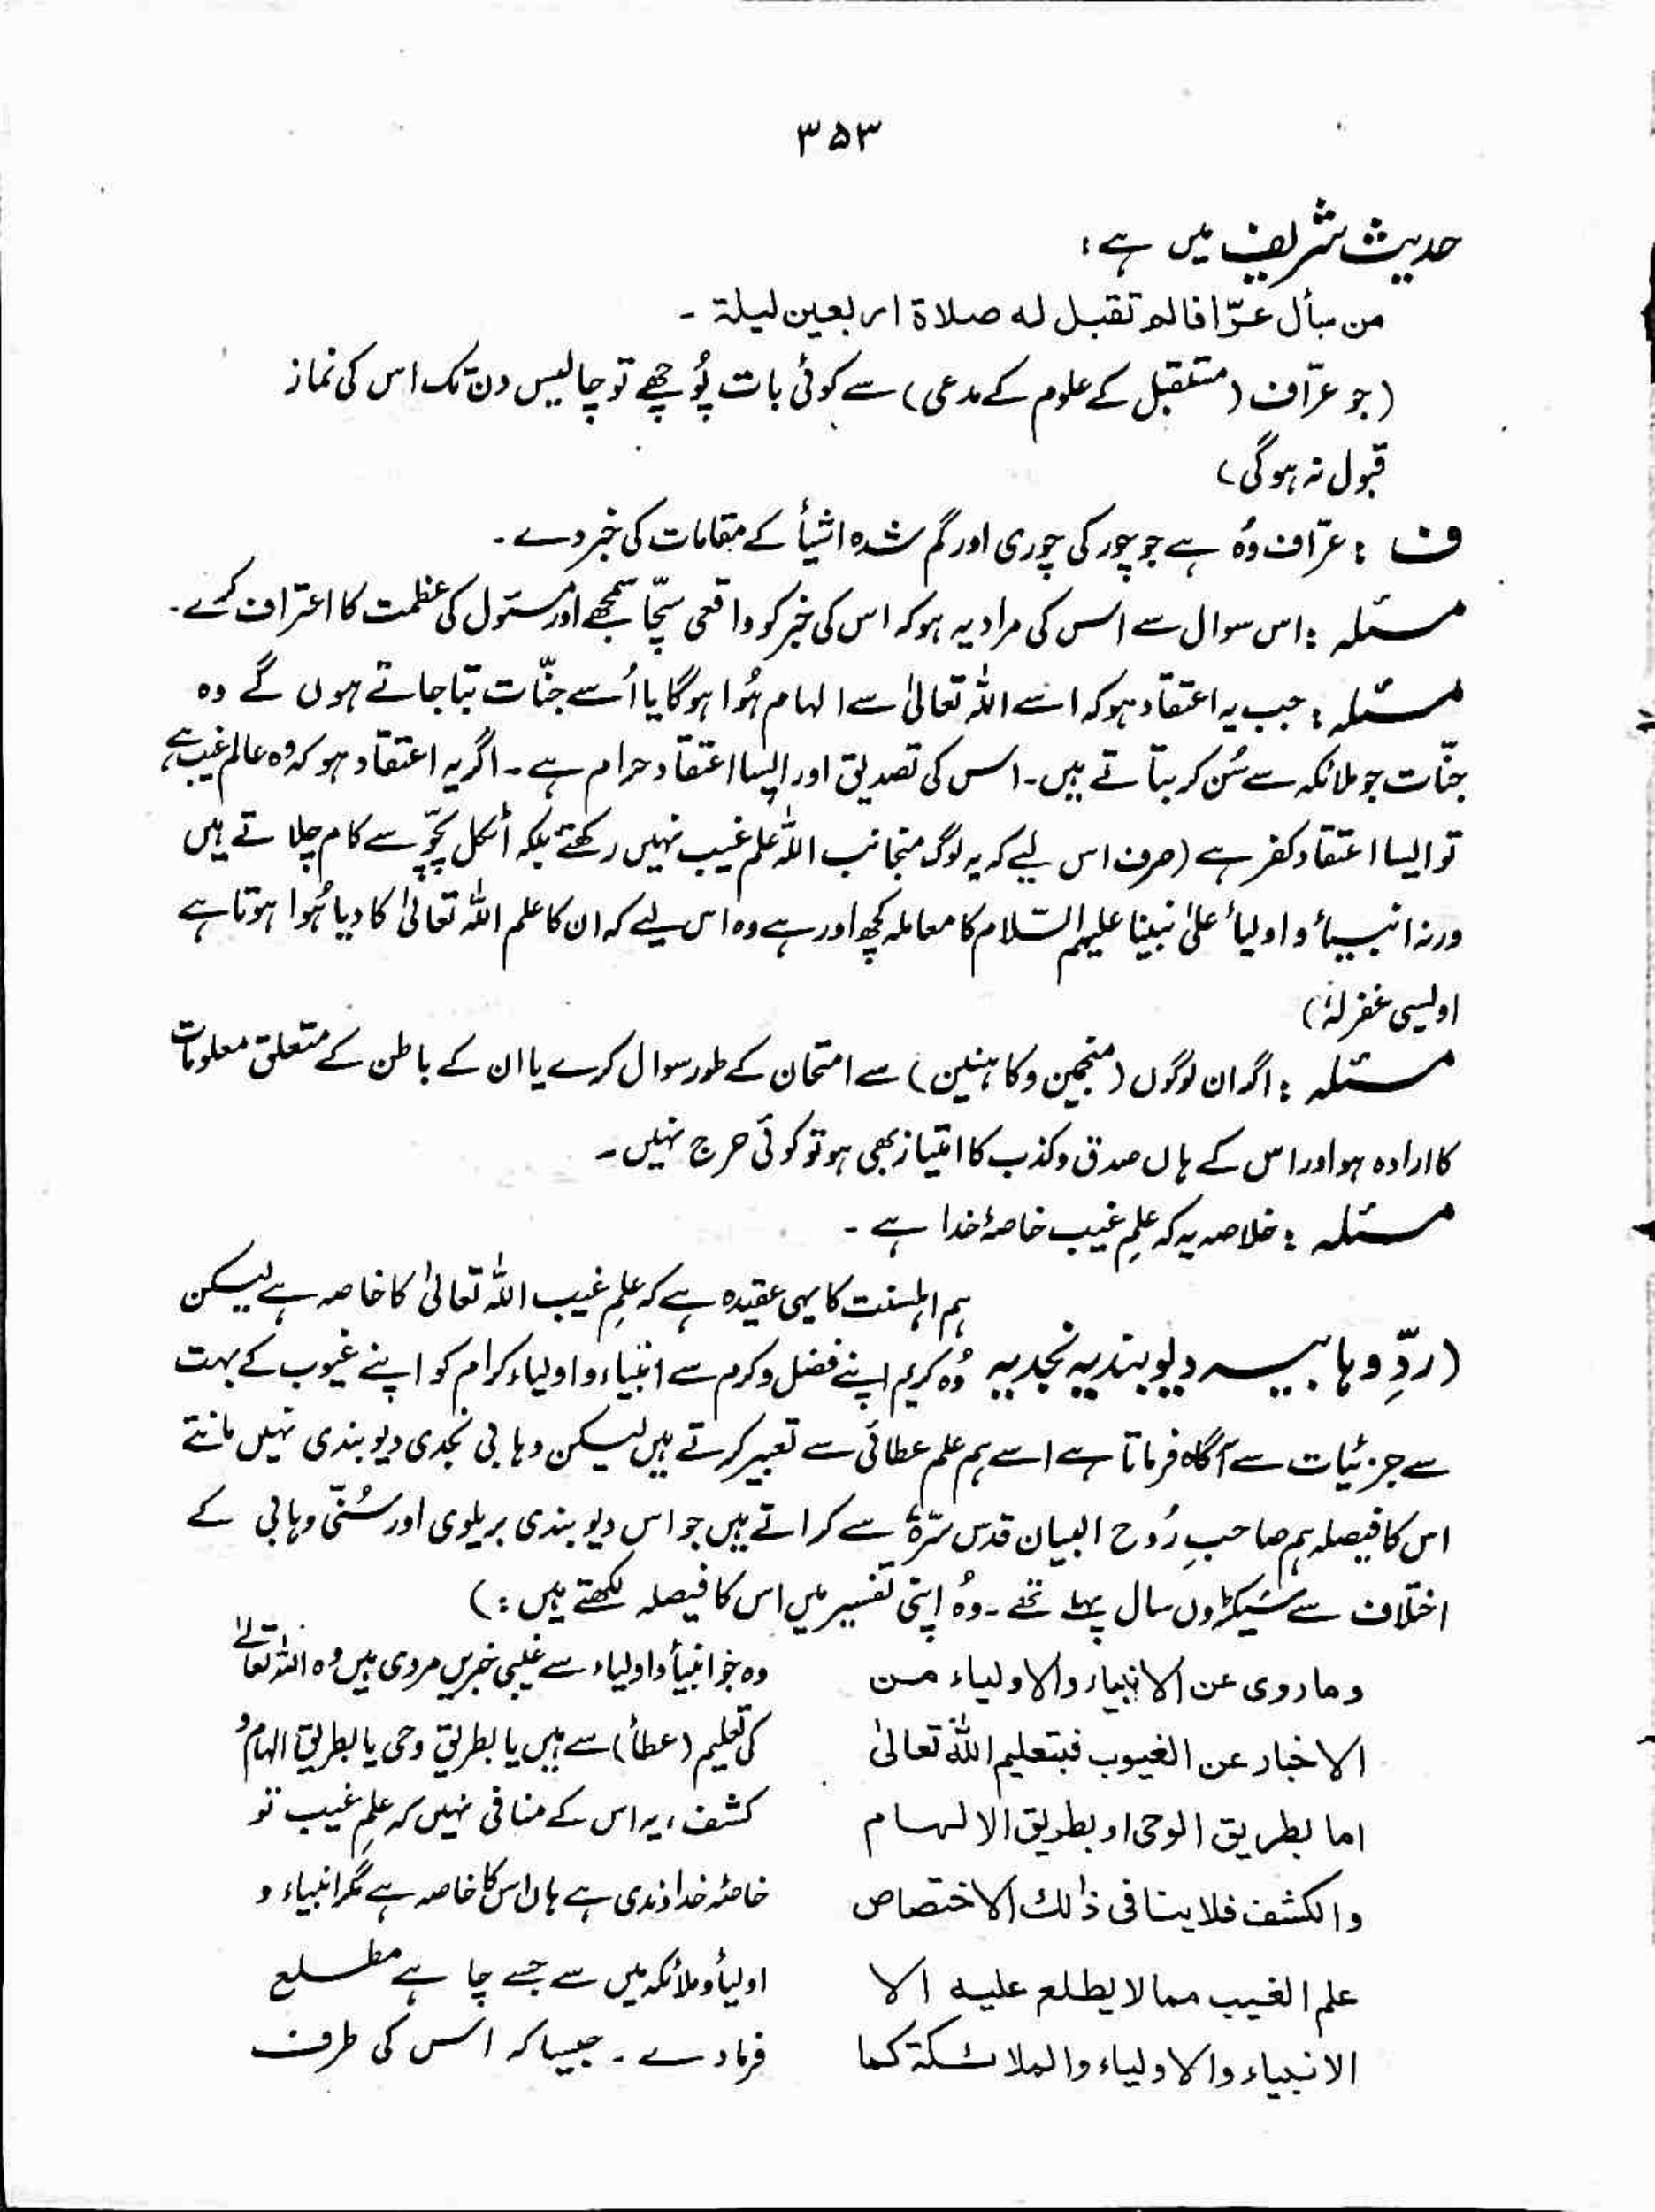 ۳۵۳
حدیث شریف میں ہے :
من سأل عرّافا لم تقبل له صلاة اربعين ليلة ۔
(جو عرّاف (مستقبل کے علوم کے مدعی) سے کوئی بات پُوچھے تو چالیس دن تک اس کی نماز
قبول نہ ہوگی)
ف : عرّاف وُہ ہے جو چور کی چوری اور گم شدہ اشیأ کے مقامات کی خبر دے ۔
مسئلہ : اس سوال سے اس کی مراد یہ ہو کہ اس کی خبر کو واقعی سچّا سمجھے اور مسئول کی عظمت کا اعتراف کرے ۔
مسئلہ : جب یہ اعتقاد ہو کہ اسے اللہ تعالیٰ سے الہام ہُوا ہوگا یا اُسے جنّات بتا جاتے ہوں گے وہ
جنّات جو ملائکہ سے سُن کر بتاتے ہیں ۔ اس کی تصدیق اور ایسا اعتقاد حرام ہے ۔ اگر یہ اعتقاد ہو کہ وہ عالم غیب ہے،
تو ایسا اعتقاد کفر ہے (صرف اس لیے کہ یہ لوگ منجانب اللہ علم غیب نہیں رکھتے بلکہ اُٹکل پچّو سے کام چلاتے ہیں
ورنہ انبیأ و اولیأ علیٰ نبینا علیہم السّلام کا معاملہ کچھ اور ہے وہ اس لیے کہ ان کا علم اللہ تعالیٰ کا دیا ہُوا ہوتا ہے
اویسی غفرلہٗ)
مسئلہ : اگر ان لوگوں (منجمین و کاہنین) سے امتحان کے طور سوال کرے یا ان کے باطن کے متعلق معلومات
کا ارادہ ہو اور اس کے ہاں صدق و کذب کا امتیاز بھی ہو تو کوئی حرج نہیں ۔
مسئلہ : خلاصہ یہ کہ علمِ غیب خاصۂ خدا ہے ۔
ہم اہلسنت کا یہی عقیدہ ہے کہ علمِ غیب اللہ تعالیٰ کا خاصہ ہے لیکن
(ردِّ وہابیہ دیوبندیہ نجدیہ وُہ کریم اپنے فضل و کرم سے انبیاء و اولیاء کرام کو اپنے غیوب کے بہت
سے جزئیات سے آگاہ فرماتا ہے اسے ہم علم عطائی سے تعبیر کرتے ہیں لیکن وہابی نجدی دیوبندی نہیں مانتے
اس کا فیصلہ ہم صاحبِ رُوح البیان قدس سرّہٗ سے کراتے ہیں جو اس دیوبندی بریلوی اور سُنّی وہابی کے
اختلاف سے سَیکڑوں سال پہلے تھے ۔ وُہ اپنی تفسیر میں اس کا فیصلہ لکھتے ہیں :)
وما روی عن الانبیاء والاولیاء من
الاخبار عن الغیوب فبتعلیم اللہ تعالیٰ
اما بطریق الوحی او بطریق الالہام
والکشف فلا ینافی ذٰلك الاختصاص
علم الغیب مما لا یطلع علیہ الا
الانبیاء والاولیاء والملائکة کما
وہ جو انبیأ و اولیاء سے غیبی خبریں مروی ہیں وہ اللہ تعالےٰ
کی تعلیم (عطأ) سے ہیں یا بطریق وحی یا بطریق الہام و
کشف ، یہ اس کے منافی نہیں کہ علمِ غیب تو
خاصۂ خداوندی ہے ہاں اس کا خاصہ ہے مگر انبیاء و
اولیأ و ملائکہ میں سے جسے چاہے مطلع
فرما دے ۔ جیسا کہ اس کی طرف